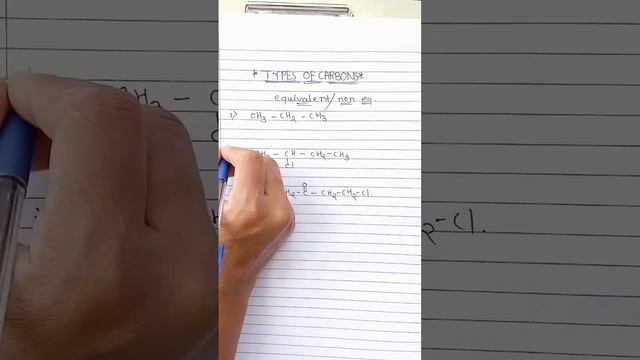 * TYPES OF CARBONS *
equivalent / non eq.
1) CH₃ – CH₂ – CH₃
– CH – CH₂ – CH₃
Cl
O
– C – CH₂ – CH₂ – Cl.